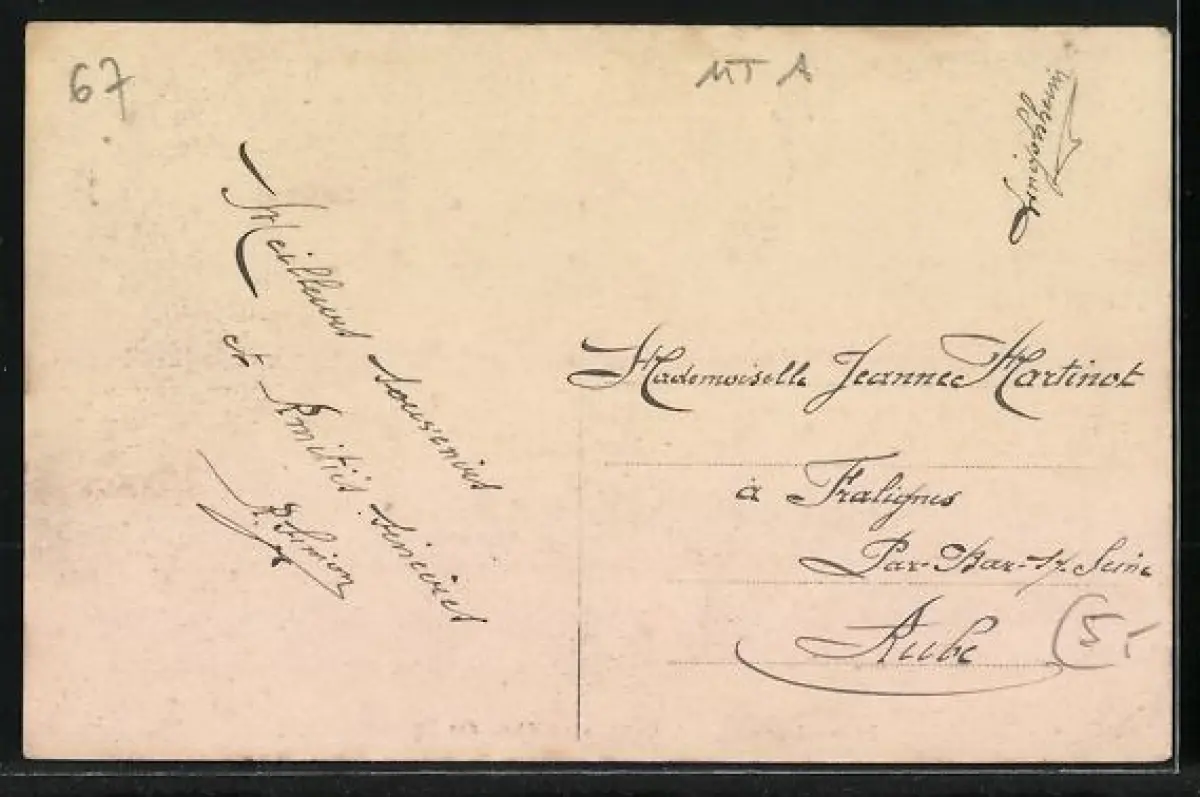 67
MT A
Meilleurs Souvenirs
et Amitiés Sincères
Mademoiselle Jeanne Martinot
à Fralignes
Par Bar-s/. Seine
Aube
5.-